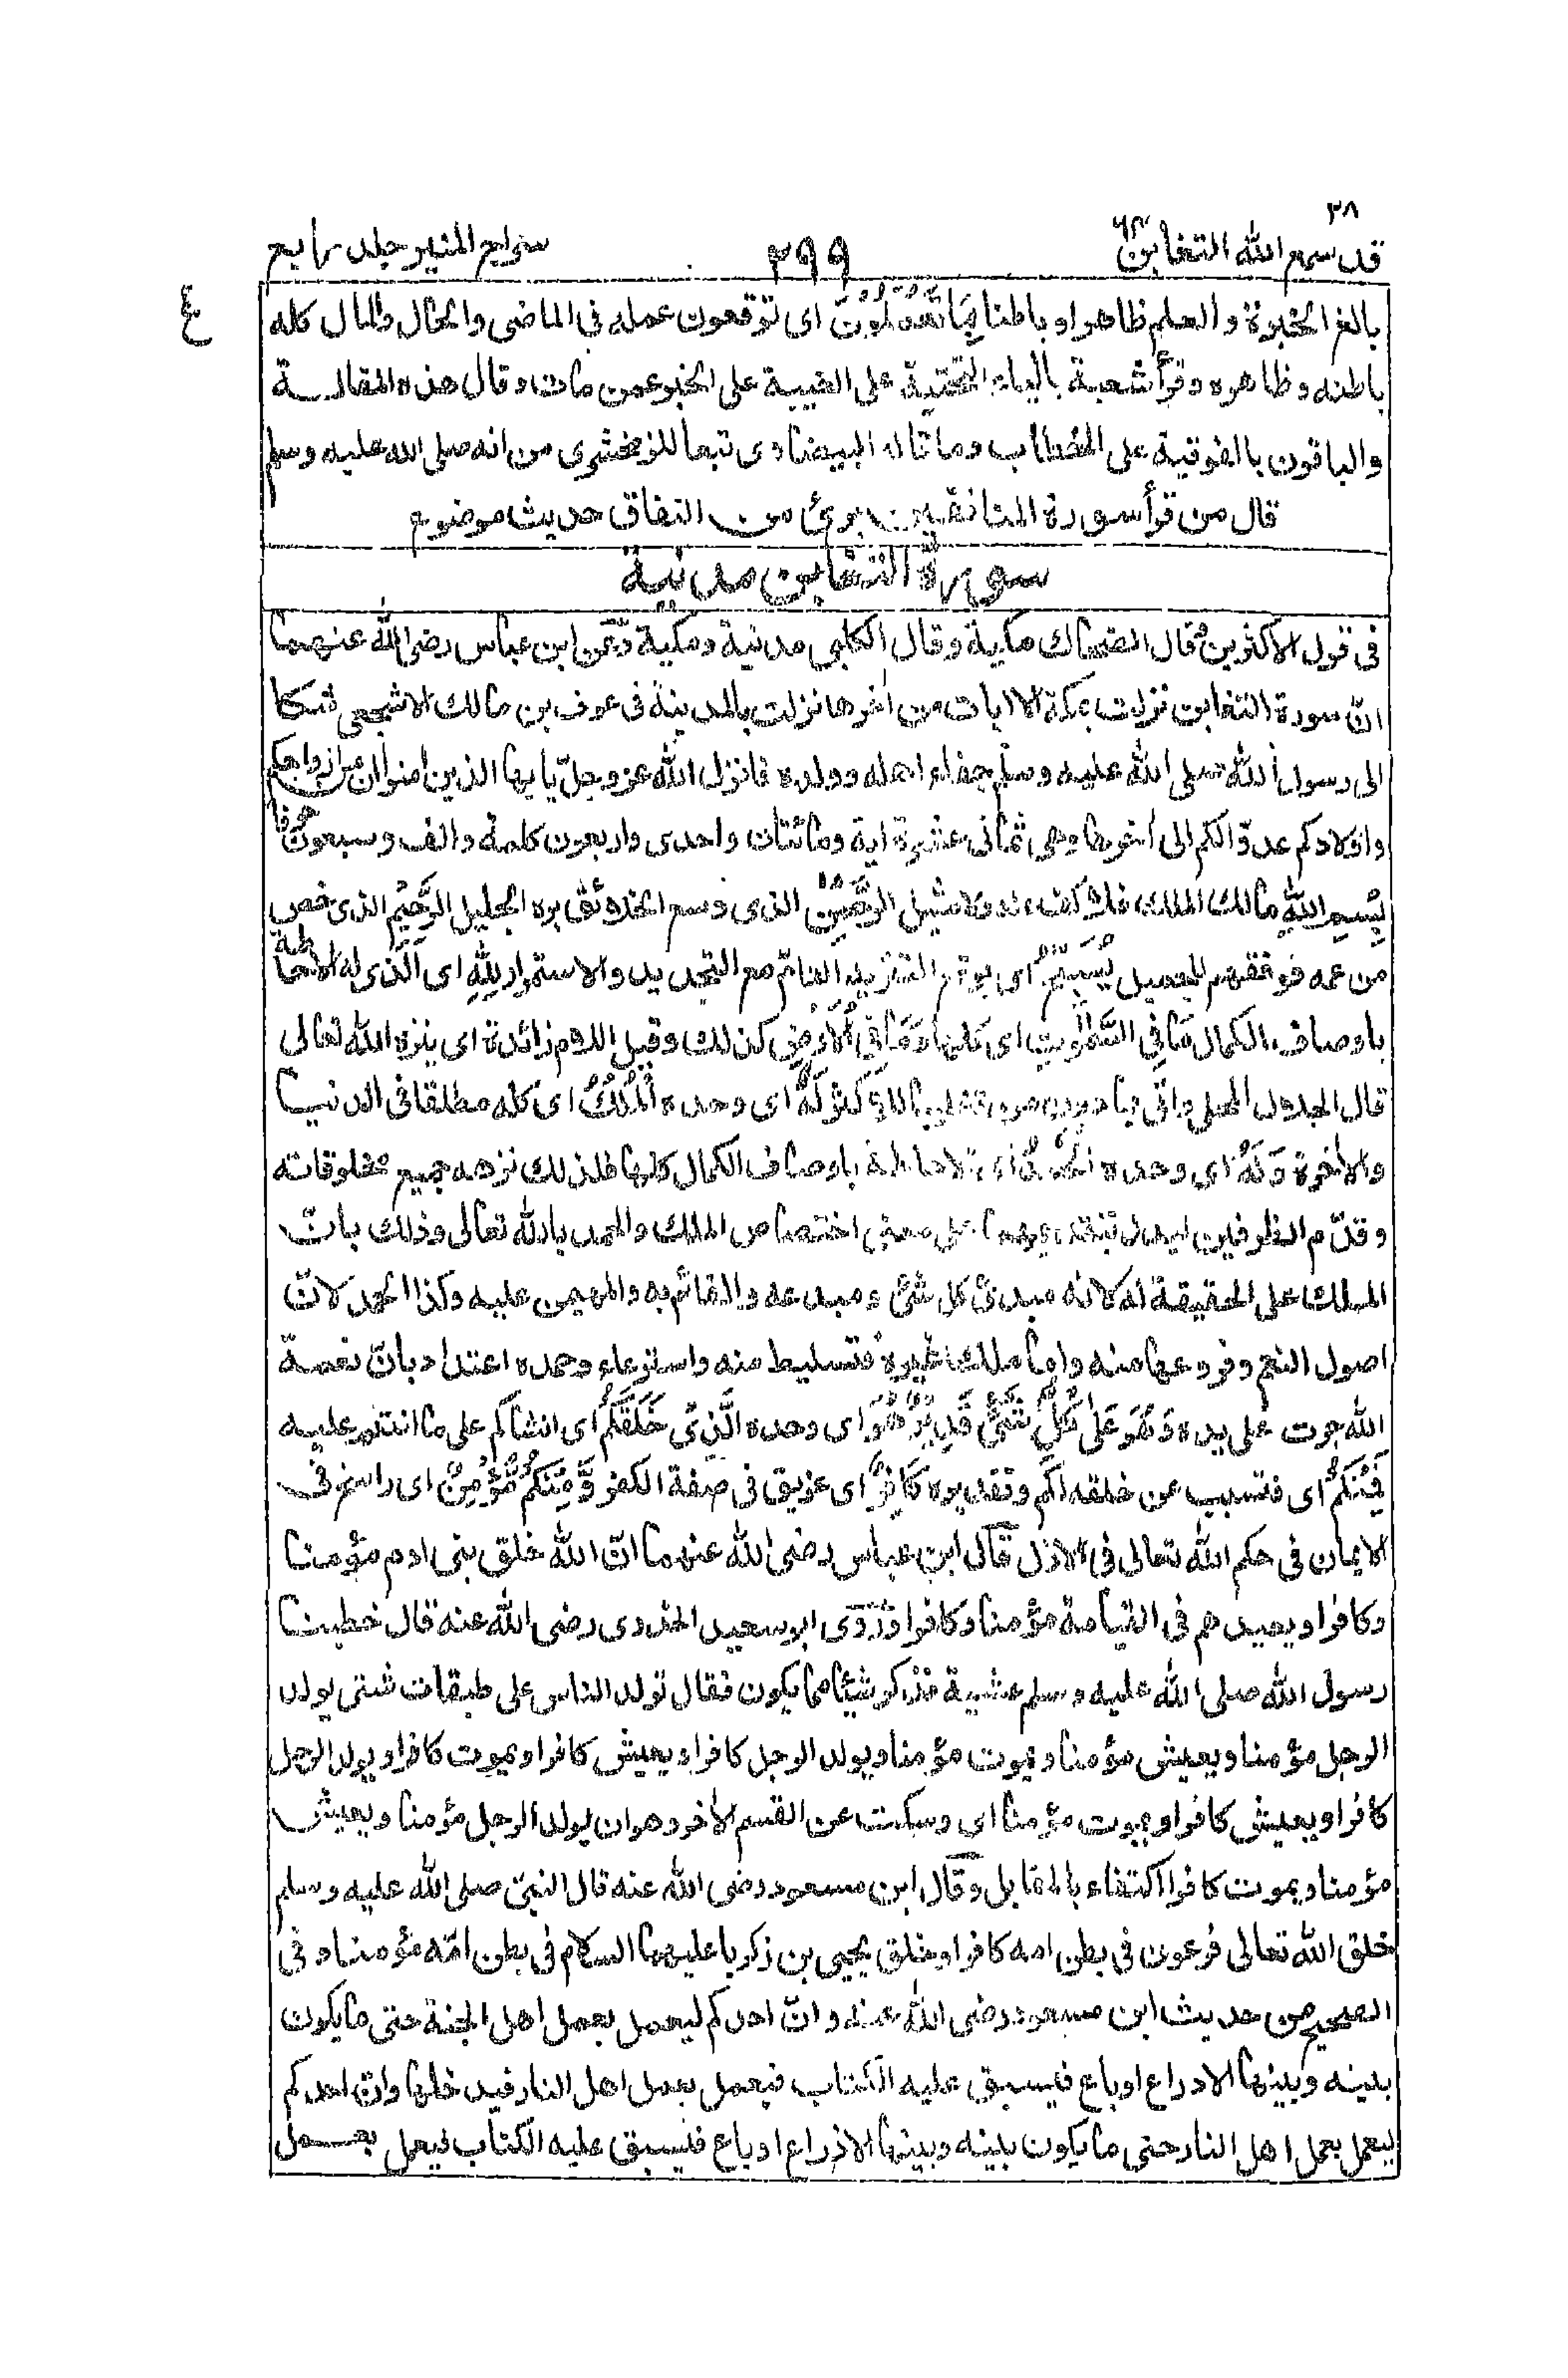 ٢٨
قد سمع الله التغابن ٦٤
٢٩٩
سراج المنير جلد رابع
ع
بالغ الخبرة والعلم ظاهرا وباطنا بِمَا تَعْمَلُوْنَ اى توقعون عمله فى الماضى والحال والمال كله
باطنه وظاهره وقرأ شعبة بالياء التحتية على الغيبة على الخبر عمن مات وقال هذه المقالة
والباقون بالفوقية على الخطاب وما قاله البيضاوى تبعا للزمخشرى من انه صلى الله عليه وسلم
قال من قرأ سورة المنافقين برئ من النفاق حديث موضوع
سورة التغابن مدنية
فى قول الاكثرين وقال الضحاك مكية وقال الكلبى مدنية ومكية وعن ابن عباس رضى الله عنهما
ان سورة التغابن نزلت بمكة الا ايات من أخرها نزلت بالمدينة فى عوف بن مالك الاشجعى شكا
الى رسول الله صلى الله عليه وسلم جفاء اهله وولده فانزل الله عز وجل يا يها الذين امنوا ان من ازواجكم
واولادكم عدوّا لكم الى أخرها وهى ثمانى عشرة اية ومائتان واحدى واربعون كلمة والف وسبعون حرفا
بِسْمِ اللهِ مالك الملك فلا كفء له ولا مثيل الرَّحْمٰنِ الذى وسع الخلائق بره الجليل الرَّحِيْمِ الذى خص
من عمه فوفقهم للجميل يُسَبِّحُ اى يوقع التنزيه التام مع التجديد والاستمرار لِلّٰهِ اى الذى له الاحاطة
باوصاف الكمال مَا فِي السَّمٰوٰتِ اى كلها وَمَا فِي الْاَرْضِ كذلك وقيل اللام زائدة اى ينزه الله تعالى
قال الجلال المحلى واتى بما دون من تغليبا للاكثر لَهُ اى وحده الْمُلْكُ اى كله مطلقا فى الدنيا
والأخرة وَلَهُ اى وحده الْحَمْدُ اى الاحاطة باوصاف الكمال كلها فلذلك نزهه جميع مخلوقاته
وقدّم الظرفين ليدل بتقديمهما على معنى اختصاص الملك والحمد بالله تعالى وذلك بانّ
الملك على الحقيقة له لانه مبدئ كل شئ ومبدعه والقائم به والمهيمن عليه وكذا الحمد لانّ
اصول النعم وفروعها منه واما ملك غيره فتسليط منه واسترعاء وحمده اعتداد بانّ نعمة
الله جرت على يده وَهُوَ عَلٰى كُلِّ شَيْءٍ قَدِيْرٌ هُوَ اى وحده الَّذِيْ خَلَقَكُمْ اى انشاكم على ما انتم عليه
فَمِنْكُمْ اى فتسبب عن خلقه لكم وتقديره كَافِرٌ اى عريق فى صفة الكفر وَّمِنْكُمْ مُّؤْمِنٌ اى راسخ فى
الايمان فى حكم الله تعالى فى الازل قال ابن عباس رضى الله عنهما انّ الله خلق بنى ادم مؤمنا
وكافرا ويعيدهم فى القيامة مؤمنا وكافرا وروى ابو سعيد الخدرى رضى الله عنه قال خطبنا
رسول الله صلى الله عليه وسلم عشية فذكر شيئا مما يكون فقال تولد الناس على طبقات شتى يولد
الرجل مؤمنا ويعيش مؤمنا ويموت مؤمنا ويولد الرجل كافرا ويعيش كافرا ويموت كافرا ويولد الرجل
كافرا ويعيش كافرا ويموت مؤمنا اى وسكت عن القسم الأخر وهو ان يولد الرجل مؤمنا ويعيش
مؤمنا ويموت كافرا اكتفاء بالمقابل وقال ابن مسعود رضى الله عنه قال النبىّ صلى الله عليه وسلم
خلق الله تعالى فرعون فى بطن امه كافرا وخلق يحيى بن زكريا عليهما السلام فى بطن امّه مؤمنا وفى
الصحيح من حديث ابن مسعود رضى الله عنه وانّ احدكم ليعمل بعمل اهل الجنة حتى ما يكون
بينه وبينها الا ذراع او باع فيسبق عليه الكتاب فيعمل بعمل اهل النار فيدخلها وان احدكم
ليعمل بعمل اهل النار حتى ما يكون بينه وبينها الا ذراع او باع فيسبق عليه الكتاب فيعمل بعمل